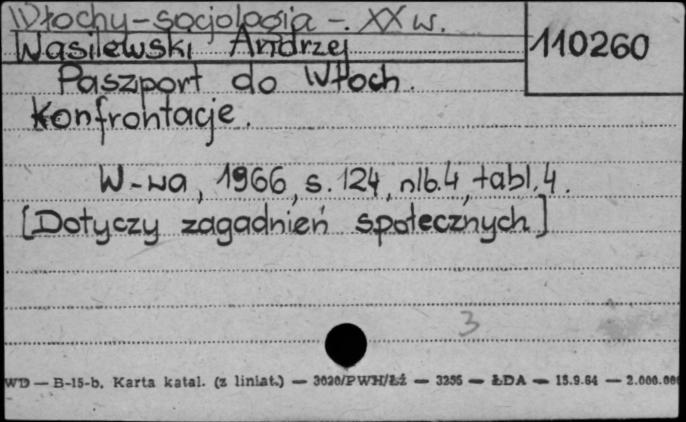 Włochy-socjologia -. XX w.
110260
Wasilewski Andrzej
Paszport do Włoch.
Konfrontacje.
W-wa, 1966, s. 124, nlb. 4, tabl. 4.
[Dotyczy zagadnień społecznych]
3
WD — B-15-b. Karta katal. (z liniat.) — 3020/PWH/Łź — 3256 — ŁDA — 15.9.64 — 2.000.000